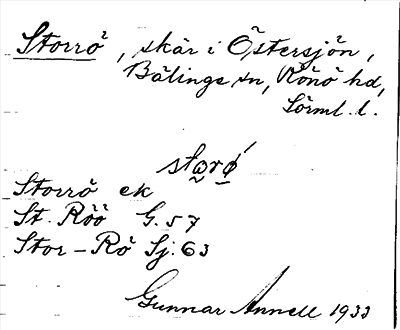 Storrö, skär i Östersjön,
Bälinge sn, Rönö hd,
Sörml. l.
storǿ
Storrö ek
St. Röö G. 57
Stor-Rö Sj. 63
Gunnar Annell 1933